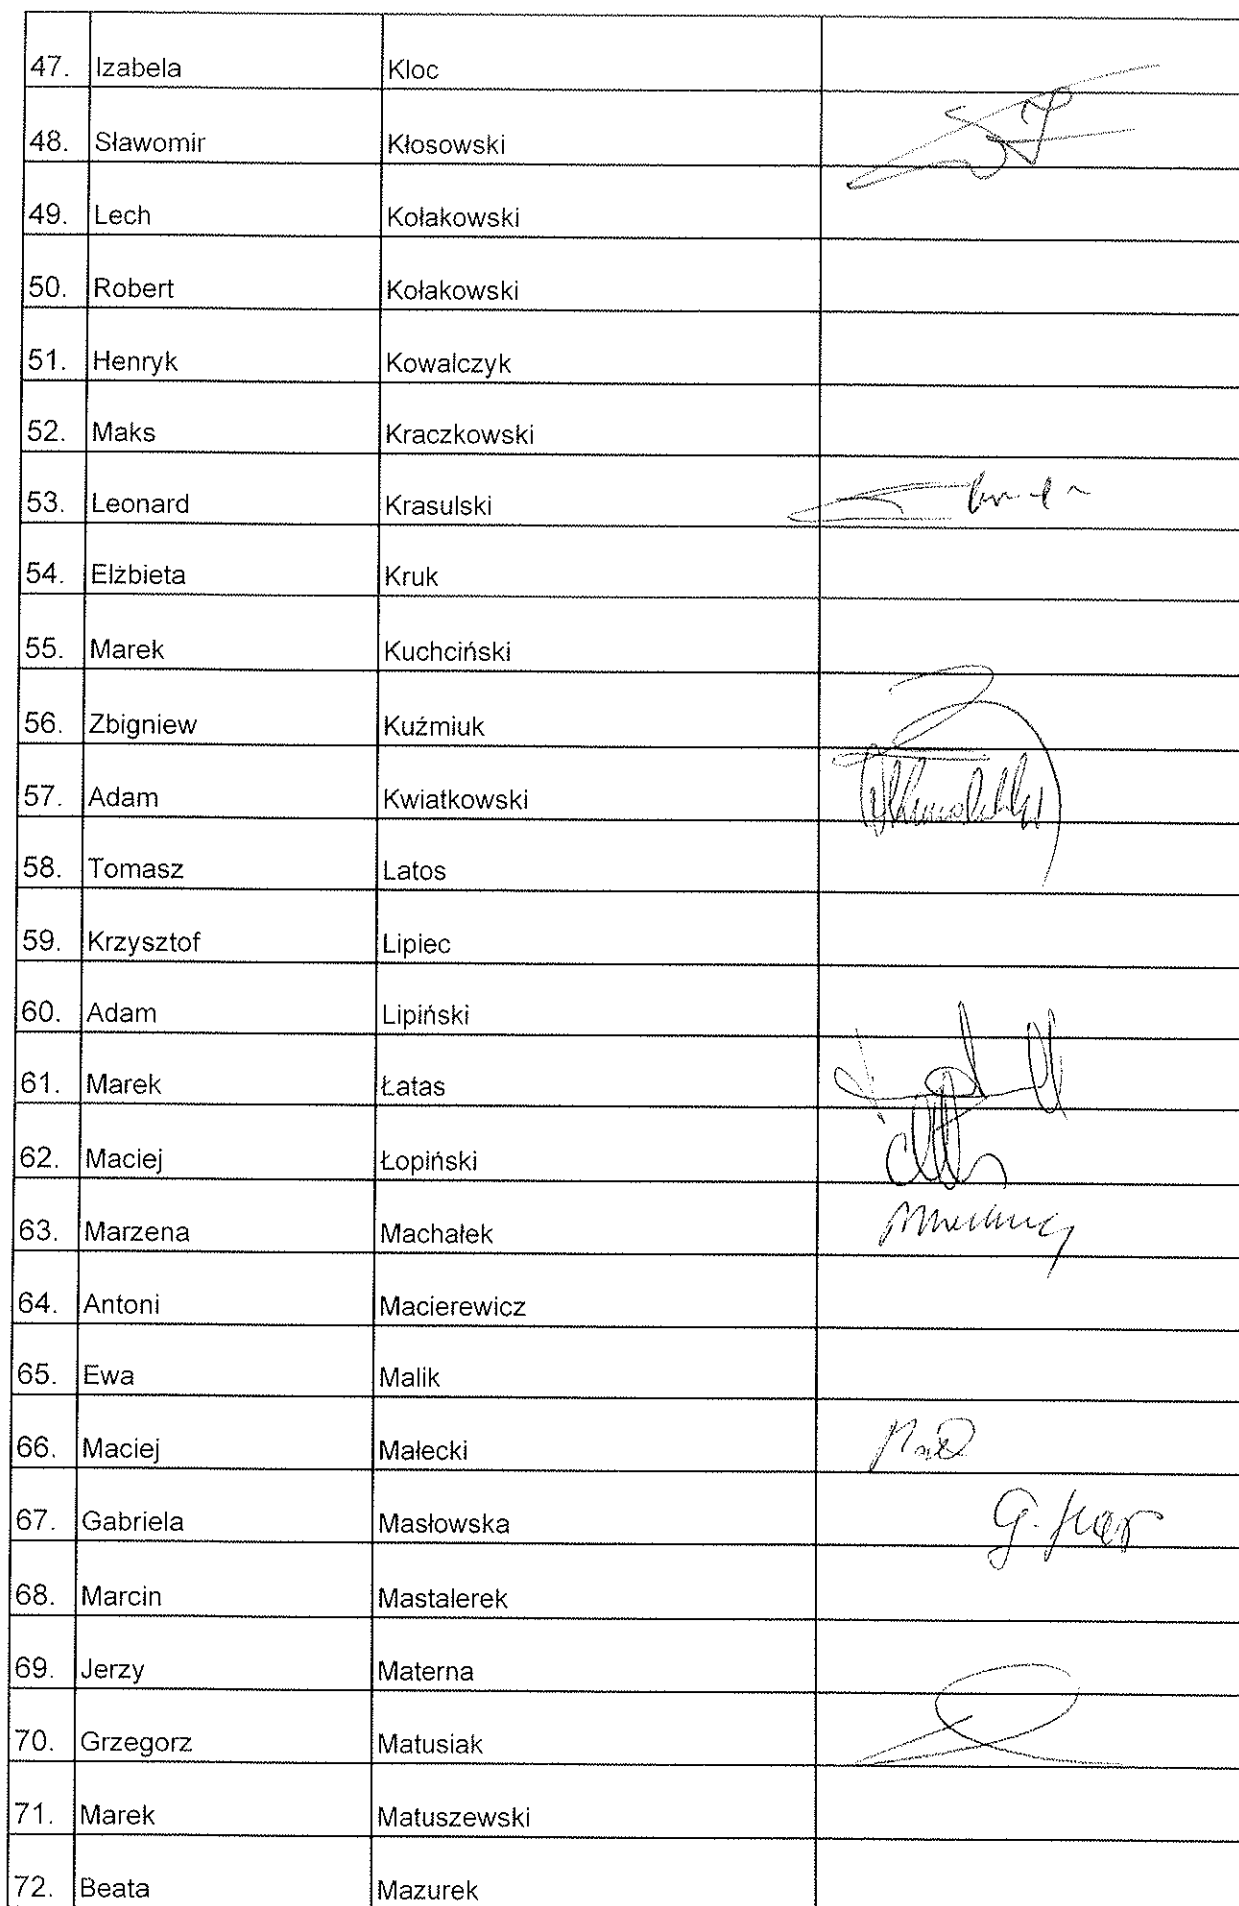 47. Izabela Kloc
48. Sławomir Kłosowski
49. Lech Kołakowski
50. Robert Kołakowski
51. Henryk Kowalczyk
52. Maks Kraczkowski
53. Leonard Krasulski
54. Elżbieta Kruk
55. Marek Kuchciński
56. Zbigniew Kuźmiuk
57. Adam Kwiatkowski
58. Tomasz Latos
59. Krzysztof Lipiec
60. Adam Lipiński
61. Marek Łatas
62. Maciej Łopiński
63. Marzena Machałek
64. Antoni Macierewicz
65. Ewa Malik
66. Maciej Małecki
67. Gabriela Masłowska
68. Marcin Mastalerek
69. Jerzy Materna
70. Grzegorz Matusiak
71. Marek Matuszewski
72. Beata Mazurek